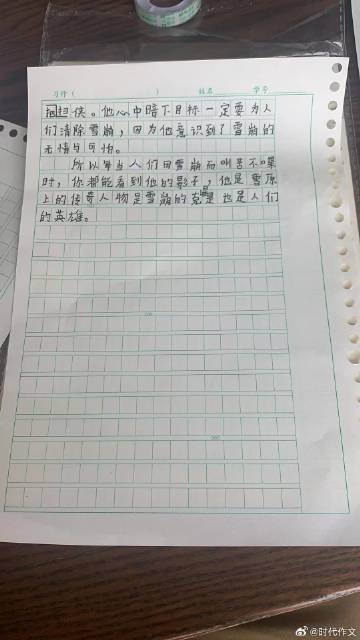 习作( )
姓名 学号
侠。他心中暗下目标一定要为人
们清除雪崩，因为他意识到了雪崩的
无情与可怕。
所以每当人们因雪崩而叫苦不喋
时，你都能看到他的影子，他是雪原
上的传奇人物是雪崩的克星也是人们
的英雄。
200
300
@时代作文